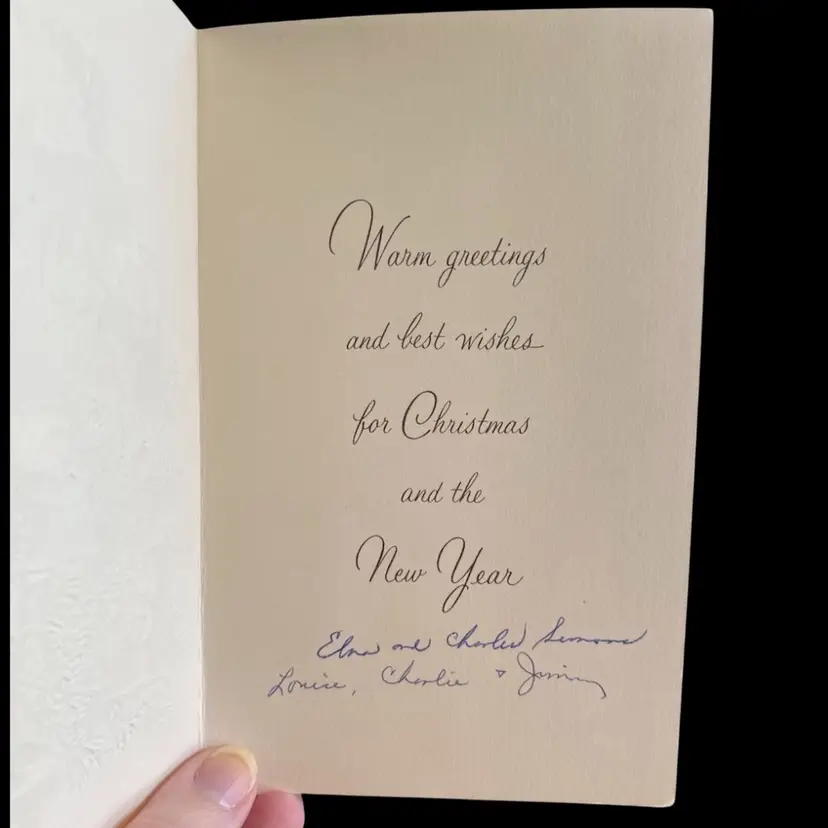 Warm greetings
and best wishes
for Christmas
and the
New Year
and Charles
Louise, Charlie & Jimmy